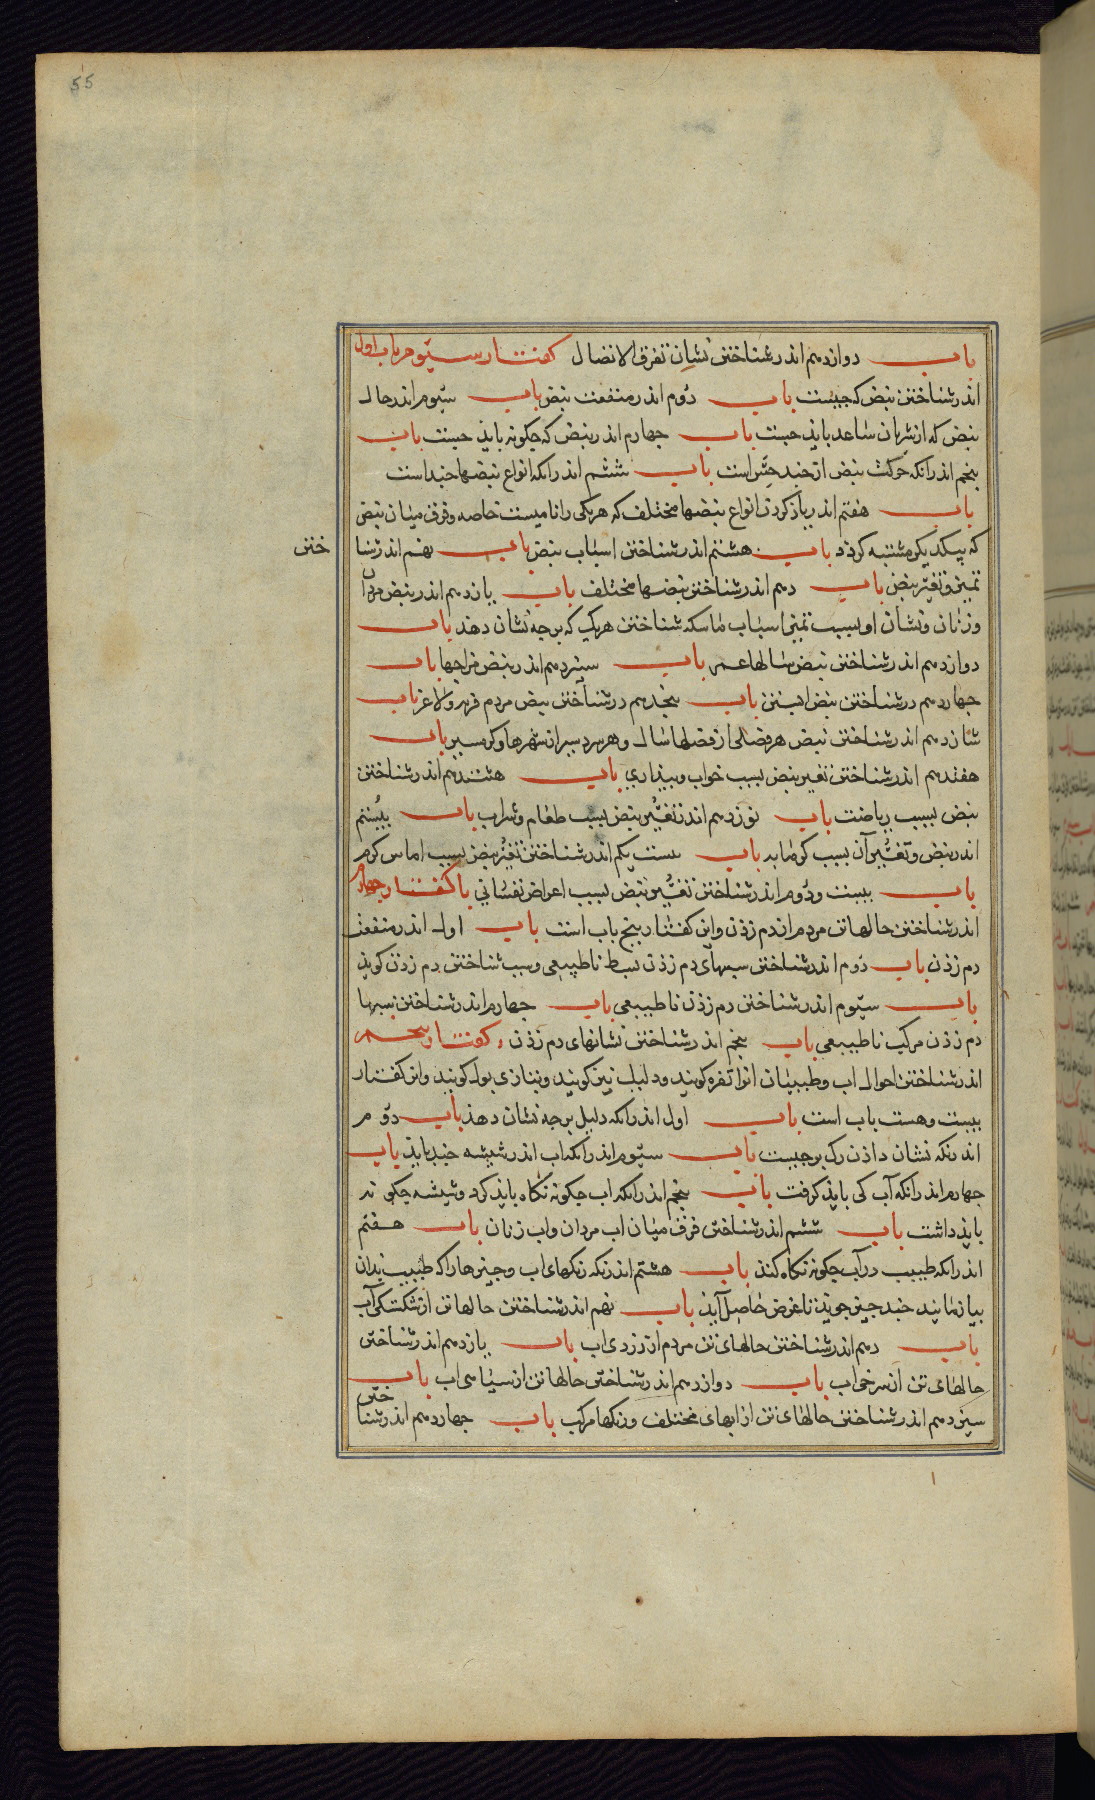 55
باب دوازدهم اندر شناختن نشان تفرق الاتصال کفتار سیوم باب اول
اندر شناختن نبض که جیست باب دوم اندر منفعت نبض باب سیوم اندر حال
نبض که از شریان ساعد بایذ جست باب جهارم اندر نبض که جکونه بایذ جست باب
بنجم اندر انکه حرکت نبض از جند جنس است باب ششم اندر انکه انواع نبضها جند است
باب هفتم اندر یاذ کردن انواع نبضها مختلف که هر یکی را نامیست خاصه و فرق میان نبض
که بیکدیکر مشتبه کردد باب هشتم اندر شناختن اسباب نبض باب نهم اندر شنا
ختن
نبض و تغیر نبض باب دهم اندر شناختن نبضها مختلف باب یازدهم اندر نبض مردان
و زنان و نشان او بسبب اسباب ماسکه شناختن هر یک که بر جه نشان دهذ باب
دوازدهم اندر شناختن نبض سالها عمر باب سیزدهم اندر نبض مزاجها باب
جهاردهم در شناختن نبض ابستن باب بنجدهم در شناختن نبض مردم فربه و لاغر باب
شانزدهم اندر شناختن نبض هر فصلی از فصلها سال و هر سردسیر از شهرها و کرمسیر باب
هفتدهم اندر شناختن تغیر نبض بسبب خواب و بیذاری باب هشتدهم اندر شناختن
نبض بسبب ریاضت باب نوزدهم اندر تغیر نبض بسبب طعام و شراب باب بیستم
اندر نبض و تغیر آن بسبب کرمابه باب بیست یکم اندر شناختن تغیر نبض بسبب اماس کرم
باب بیست و دوم اندر شناختن تغیر نبض بسبب اعراض نفسانی با کفتار جهارم
اندر شناختن حالها تن مردم از دم زذن و این کفتار بنج باب است باب اول اندر منفعت
دم زذن باب دوم اندر شناختن سببهای دم زذن بسط ناطبیعی و سبب شناختن دم زذن کویذ
باب سیوم اندر شناختن دم زذن ناطبیعی باب جهارم اندر شناختن سببها
دم زذن مرکب ناطبیعی باب بنجم اندر شناختن نشانهای دم زذن کفتار بنجم
اندر شناختن احوال اب و طبیبان انرا تفسره کویند و دلیل نیز کویند و بتازی بول کویند و این کفتار
بیست و هست باب است باب اول اندر انکه دلیل بر جه نشان دهذ باب دوم
اندر نکه نشان داذن رک بر جیست باب سیوم اندر انکه اب اندر شیشه جند بایذ باب
جهارم اندر انکه آب کی بایذ کرفت باب بنجم اندر انکه اب جکونه نکاه بایذ کرد و شیشه جکونه
بایذ داشت باب ششم اندر شناختن فرق میان اب مردان و اب زنان باب هفتم
اندر انکه طبیب در آب جکونه نکاه کند باب هشتم اندر نکه رنکهای اب و جیزها را که طبیب بذان
بیازمایند جند جیز جویذ تا غرض حاصل آیذ باب نهم اندر شناختن حالها تن از تنکی آب
باب دهم اندر شناختن حالهای تن مردم از زردی اب باب یازدهم اندر شناختن
حالهای تن از سرخی اب باب دوازدهم اندر شناختن حالها تن از سیاهی اب باب
سیزدهم اندر شناختن حالهای تن از ابهای مختلف و رنکها مرکب باب جهاردهم اندر شنا
ختن